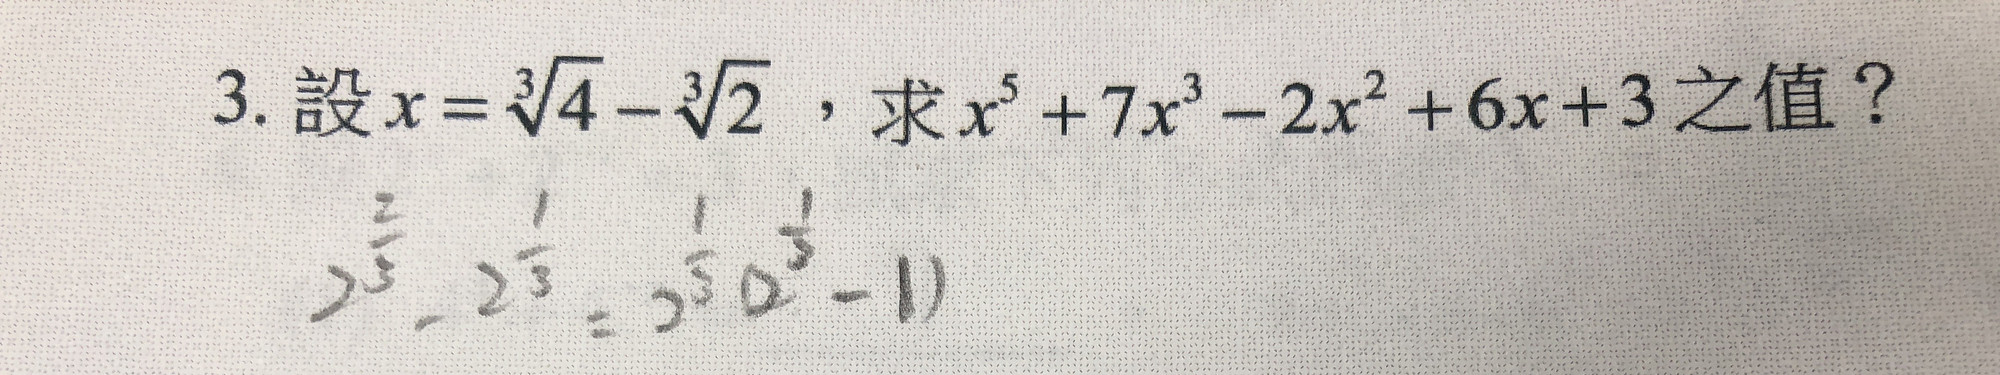 3. 設 x = ∛4 − ∛2 ，求 x⁵ + 7x³ − 2x² + 6x + 3 之值？
2^(2/3) - 2^(1/3) = 2^(1/3) (2^(1/3) - 1)